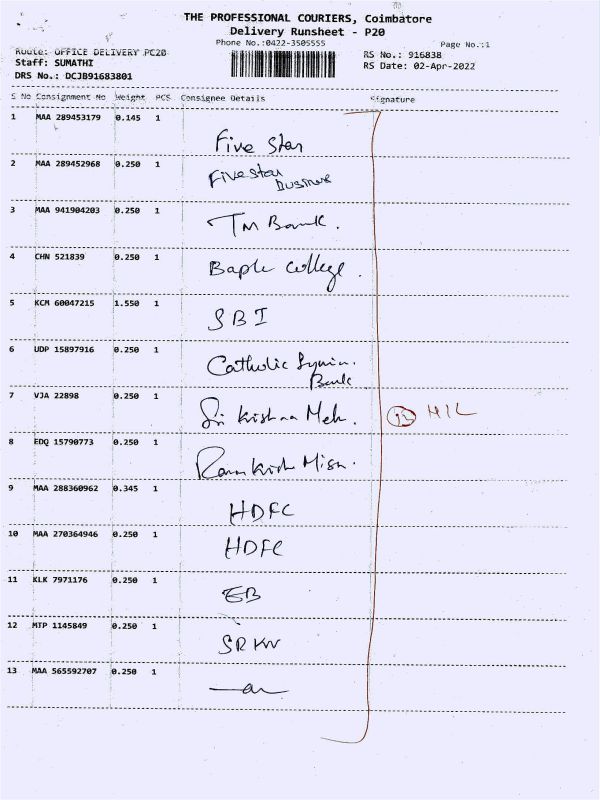 THE PROFESSIONAL COURIERS, Coimbatore
Delivery Runsheet - P20
Phone No.:0422-3505555
Page No.:1
Route: OFFICE DELIVERY PC20
RS No.: 916838
Staff: SUMATHI
RS Date: 02-Apr-2022
DRS No.: DCJB91683801
S No Consignment No Weight PCS Consignee Details Signature
1 MAA 289453179 0.145 1
Five Star
2 MAA 289452968 0.250 1
Five star
3 MAA 941904203 0.250 1
TM Bank.
4 CHN 521839 0.250 1
College.
5 KCM 60047215 1.550 1
SBI
6 UDP 15897916 0.250 1
Catholic Syrian.
Bank
7 VJA 22898 0.250 1
Sri Krishna Meh. NIL
8 EDQ 15790773 0.250 1
Misn.
9 MAA 288360962 0.345 1
HDFC
10 MAA 270364946 0.250 1
HDFC
11 KLK 7971176 0.250 1
EB
12 MTP 1145849 0.250 1
SRKV
13 MAA 565592707 0.250 1